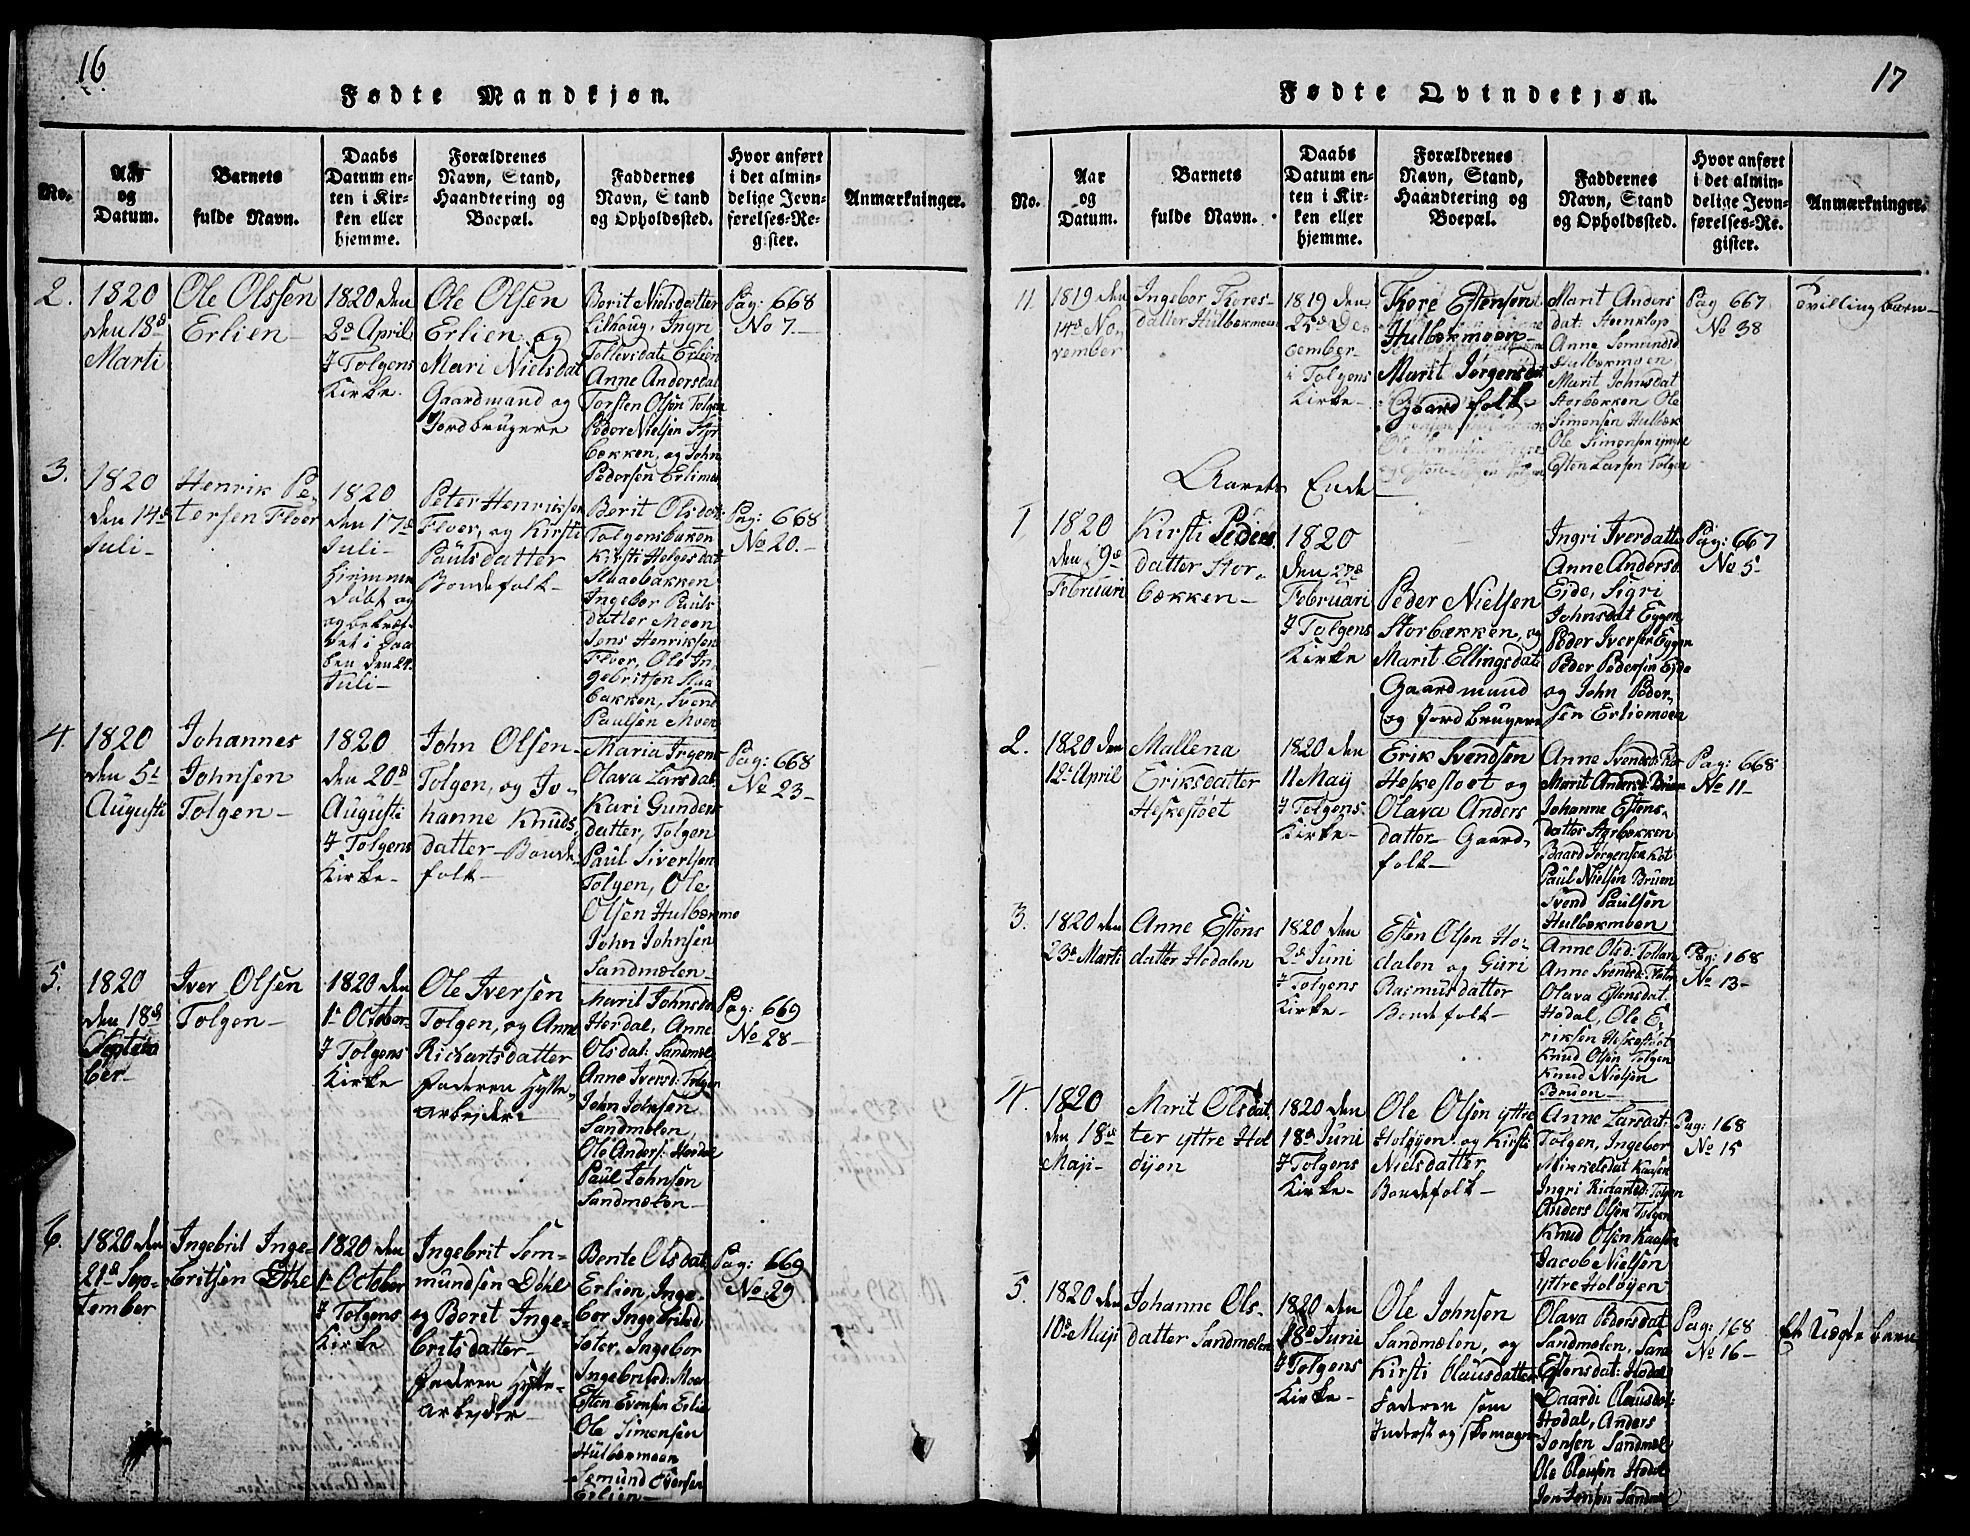 16
Fødte Mandkjøn.
No.
Aar
og
Datum.
Barnets
fulde Navn.
Daabs
Datum en-
ten i Kir-
ken eller
hjemme.
Forældrenes
Navn, Stand,
Haandtering og
Boepæl.
Faddernes
Navn, Stand
og Opholdssted.
Hvor anført
i det almin-
delige Jevn-
førelses-Re-
gister.
Anmærkninger.
2.
1820
den 18d
Marti
Ole Olssen
Erlien
1820 den
2d April
I Tolgens
Kirke
Ole Olsen
Erlien og
Mari Nielsdat
Gaardmand og
Jordbrugere
Berit Nielsdatter
Lilhoug, Ingri
Tollevsdat: Erlien
Anne Andersdat
Torsten Olsen Tolgen
Peder Nielsen Stor
bækken, og John
Pedersen Erlimoe
Pag: 668
No 7.
3.
1820
den 14d
Juli
Henrik Pe-
tersen Floer
1820
den 17d
Juli
hiemme
døbt og
og bekræf-
tet i Daa
ben den 24
Juli
Peter Henriksen
Floer, og Kirsti
Paulsdatter
Bondefolk
Berit Olsdat:
Tolgensbakken
Kirsti Helgesdat
Staaebakken
Ingebor Pauls
datter Moen
Jens Henriksen
Floer, Ole In-
gebritsen Staa
bakken, Svend
Paulsen Moen
Pag: 668
No 20.
4.
1820
den 5t
Augusti
Johannes
Johnsen
Tolgen
1820
den 20d
Augusti
I Tolgens
Kirke
John Olsen
Tolgen, og Jo-
hanne Knuds
datter Bonde-
folk
Maria Irgens
Olava Larsdat
Kari Gunders
datter, Tolgen
Paul Sivertsen
Tolgen, Ole
Olsen Hulbækmo
John Johnsen
Sandmælen
Pag: 668
No 23
5.
1820
den 18d
Septem
ber
Iver Olsen
Tolgen
1820 den
1e October
I Tolgens
Kirke
Ole Iversen
Tolgen, og Anne
Richartsdatter
Faderen Hytte-
arbejdere
Marit Johnsdat
Hordal, Anne
Olsdat: Sandmæl
Anne Iversd: Tolgen
John Johnsen
Sandmælen,
Ole Anders: Hordal
Paul Johnsen
Sandmælen
Pag: 669
No 28
6.
1820 den
21d Sep-
tember
Ingebrit Inge-
britsen Døhl
1820 den
1e October
I Tolgens
Kirke
Ingebrit Sem-
mundsen Døhl
og Berit Inge-
britsdatter
Faderen Hytte-
arbejder
Bente Olsdat
Erlien, Inge-
bor Ingebritsd
Ingebor
Ingebritsd: Moen
Esten Evensen Erlie
Ole Simonsen
Hulbækmoen
Semund Iversen
Erlien
Pag: 669
No 29
17
Fødte Qvindekjøn.
No.
Aar
og
Datum.
Barnets
fulde Navn.
Daabs
Datum en-
ten i Kir-
ken eller
hjemme.
Forældrenes
Navn, Stand,
Haandtering og
Boepæl.
Faddernes
Navn, Stand
og Opholdssted.
Hvor anført
i det almin-
delige Jevn-
førelses-Re-
gister.
Anmærkninger.
11.
1819 den
14d No
vember
Ingebor Tores-
datter Hulbækmoen
1819 den
25d De
cember
i Tolgens
Kirke
Tore Estensen
Hulbækmoen
Marit Jørgensdat
Gaardfolk
Marit Anders
dat:
Anne Semundsd
Hulbækmoen
Marit Johnsdat
Storbækken Ole
Simonsen Hulbæk
Ole Simonsen yngre
Esten Larsen Tolgen
Pag 667
No 38
Tvilling barn
Aarets Ende
1.
1820
den 9de
Februari
Kirsti Peders
datter Stor-
bækken
1820
den 27de
Februari
I Tolgens
Kirke
Peder Nielsen
Storbækken, og
Marit Ellingsdat
Gaardmand
og Jordbrugere
Ingri Iverdatter
Anne Andersd
Eide, Sigri
Johnsdat Eggen
Peder Iversen Eggen
Peder Pedersen Eide
og John Peder-
sen Erliemoen
Pag: 667
No 5
2.
1820 den
12t April
Mallena
Eriksdatter
Heskestøet
1820 den
11 Maij
I Tolgens
Kirke
Erik Svendsen
Heskestoet og
Olava Anders
datter Gaard-
folk
Anne Svendsd: Kot
Marit Andersd: Bruen
Johanne Estens-
datter Storbækken
Baard Jørgensen Kot
Paul Nielsen Bruen
Svend Paulsen
Hulbækmoen
Pag: 668
No 11
3.
1820 den
23d Marti
Anne Estens
datter Hodalen
1820 den
2d Juni
I Tolgens
Kirke
Esten Olsen Ho-
dalen og Guri
Rasmusdatter
Bondefolk
Anne Olsd: Tollan
Anne Svendsd:
Olava Estensdat
Hodal, Ole E-
riksen Heskestøet
Knud Olsen Tolgen
Knud Nielsen
Bruen
Pag: 168
No 13
4.
1820
den 18de
Maji
Marit Olsdat
ter yttre Hol
øyen
1820 den
18d Juni
I Tolgens
Kirke
Ole Olsen yttre
Holøyen og Kirsti
Nielsdatter
Bondefolk
Anne Larsdat:
Tolgen, Ingebor
Mikkelsdat Kaasen
Ingri Richartsd: Tolgen
Anders Olsen Tolgen
Knud Olsen Kaasen
Jacob Nielsen
yttre Holøyen
Pag: 168
No 15
5.
1820 den
10de Maji
Johanne Ols-
datter Sandmælen
1820 den
18d Juni
I Tolgens
Kirke
Ole Johnsen
Sandmælen, og
Kirsti Olausdatter
Faderen som
Inderst og skomager
Olava Pedersdat
Sandmælen, Sara
Estensdat: Hodal
Baardi Olausdat:
Hodal, Anders
Jonsen Sandmæl
Ole Olausen Hodal
Jon Jonsen Sandmæl
Pag: 168
No 16
Et Uægte barn